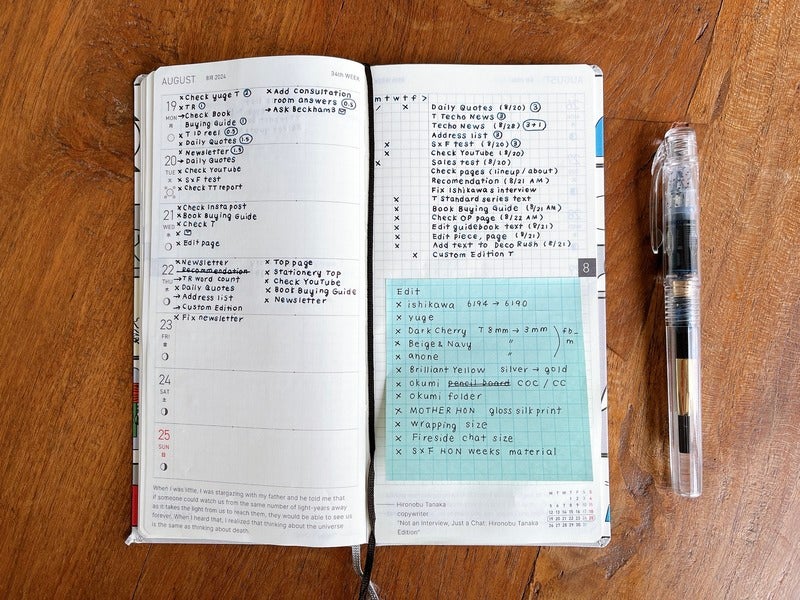 AUGUST BR 2024 34th WEEK
19 MON
×Check yuge T 2
×TR 1
→Check Book
Buying Guide 1
×T 10 reel 0.5
×Daily Quotes 1.5
×Newsletter 1.5
→Daily Quotes
×Add consultation
room answers 0.5
→ASK Beckham3
20 TUE
×Check YouTube
×S×F test
×Check TT report
21 WED
×Check Insta post
×Book Buying Guide
×Check T
×
×Edit page
22 THU
×Newsletter
Recommendation
→TR word count
×Daily Quotes
→Address list
→Custom Edition
×Top page
×Stationery Top
×Check YouTube
×Book Buying Guide
×Newsletter
23 FRI
×Fix newsletter
24 SAT
25 SUN
When I was little, I was stargazing with my father and he told me that
if someone could watch us from the same number of light-years away
as it takes the light from us to reach them, they would be able to see us
forever. When I heard that, I realized that thinking about the universe
is the same as thinking about death.
m t w t f >
Daily Quotes (8/20) 3
T Techo News 3
Techo News (8/28) 3+1
Address list 3
S×F test (8/20) 3
Check YouTube (8/20)
Sales test (8/20)
Check pages (lineup/about)
Recomendation (8/21 AM)
Fix Ishikawa's interview
T Standard series text
Book Buying Guide (8/21 AM)
Check OP page (8/22 AM)
Edit guidebook text (8/21)
Edit Piece, page (8/21)
Add text to Deco Rush (8/21)
Custom Edition T
8
Edit
× ishikawa 6194→6190
× yuge
× Dark Cherry T 8mm→3mm
× Beige & Navy 〃
× anone 〃
fb_
m
× Brilliant Yellow silver→gold
× okumi pencil board COC / CC
× okumi folder
× MOTHER HON gloss silk print
× wrapping size
× Fireside chat size
× S×F HON weeks material
Hironobu Tanaka
copywriter
"Not an Interview, Just a Chat: Hironobu Tanaka
Edition"
M T W T F S S
1 2 3 4
5 6 7 8 9 10 11
12 13 14 15 16 17 18
19 20 21 22 23 24 25
26 27 28 29 30 31